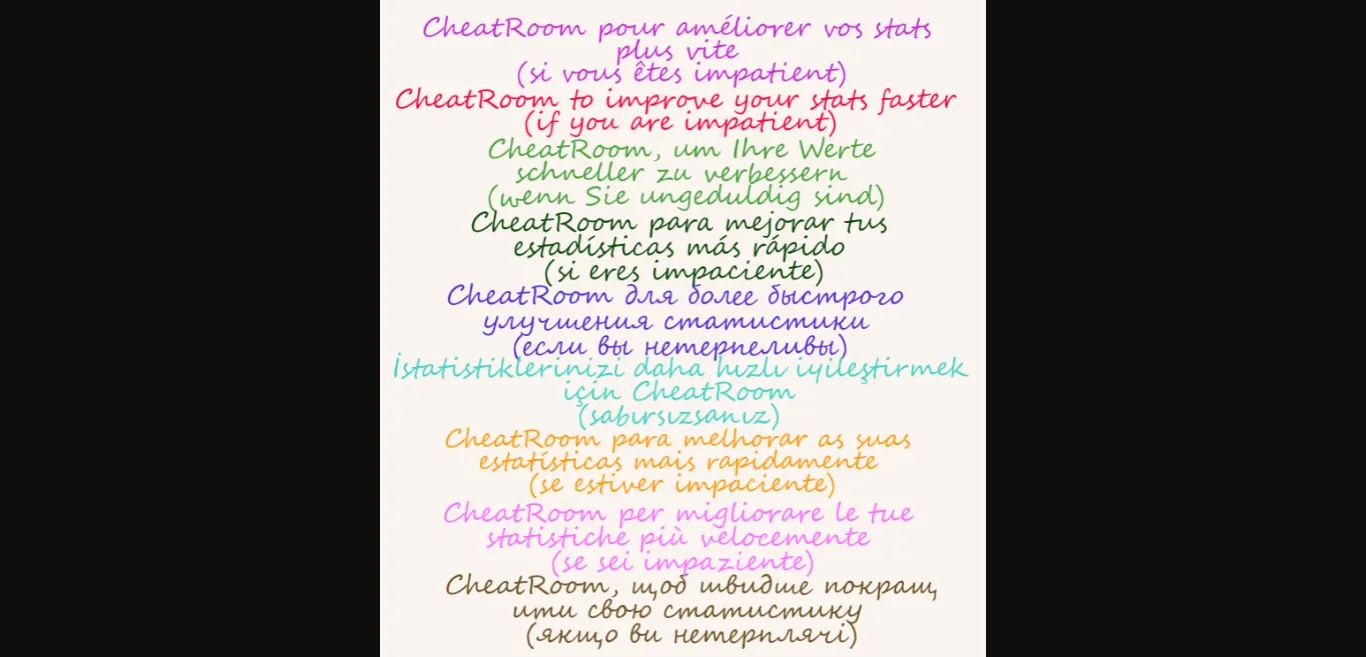 CheatRoom pour améliorer vos stats
plus vite
(si vous êtes impatient)
CheatRoom to improve your stats faster
(if you are impatient)
CheatRoom, um Ihre Werte
schneller zu verbessern
(wenn Sie ungeduldig sind)
CheatRoom para mejorar tus
estadísticas más rápido
(si eres impaciente)
CheatRoom для более быстрого
улучшения статистики
(если вы нетерпеливы)
İstatistiklerinizi daha hızlı iyileştirmek
için CheatRoom
(sabırsızsanız)
CheatRoom para melhorar as suas
estatísticas mais rapidamente
(se estiver impaciente)
CheatRoom per migliorare le tue
statistiche più velocemente
(se sei impaziente)
CheatRoom, щоб швидше покращ
ити свою статистику
(якщо ви нетерплячі)